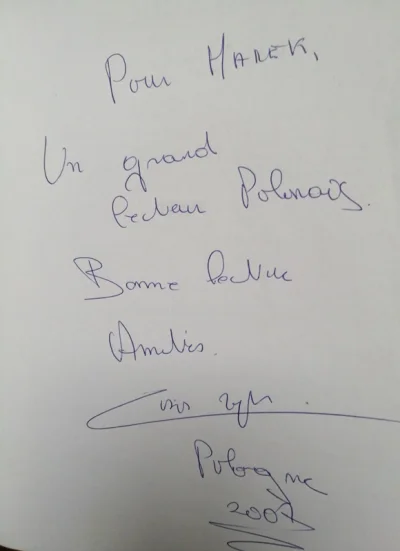 Pour MAREK,
Un grand
lecteur Polonais.
Bonne lecture
Amitiés.
Pologne
2007